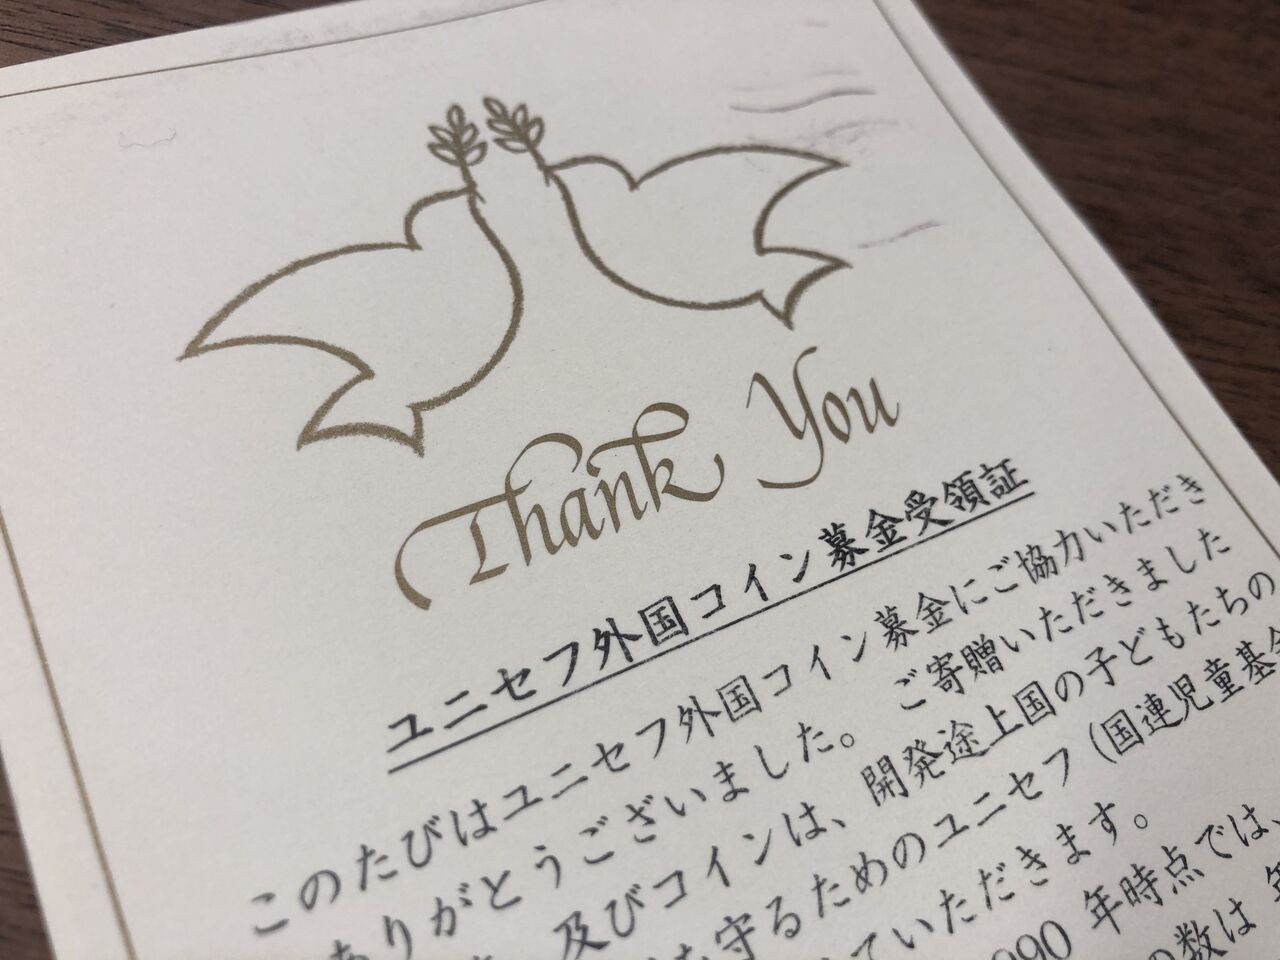 Thank You
ユニセフ外国コイン募金受領証
このたびはユニセフ外国コイン募金にご協力いただき
ありがとうございました。ご寄贈いただきました
及びコインは、開発途上国の子どもたちの
を守るためのユニセフ(国連児童基金
ていただきます。
990 年時点では、
の数は 年